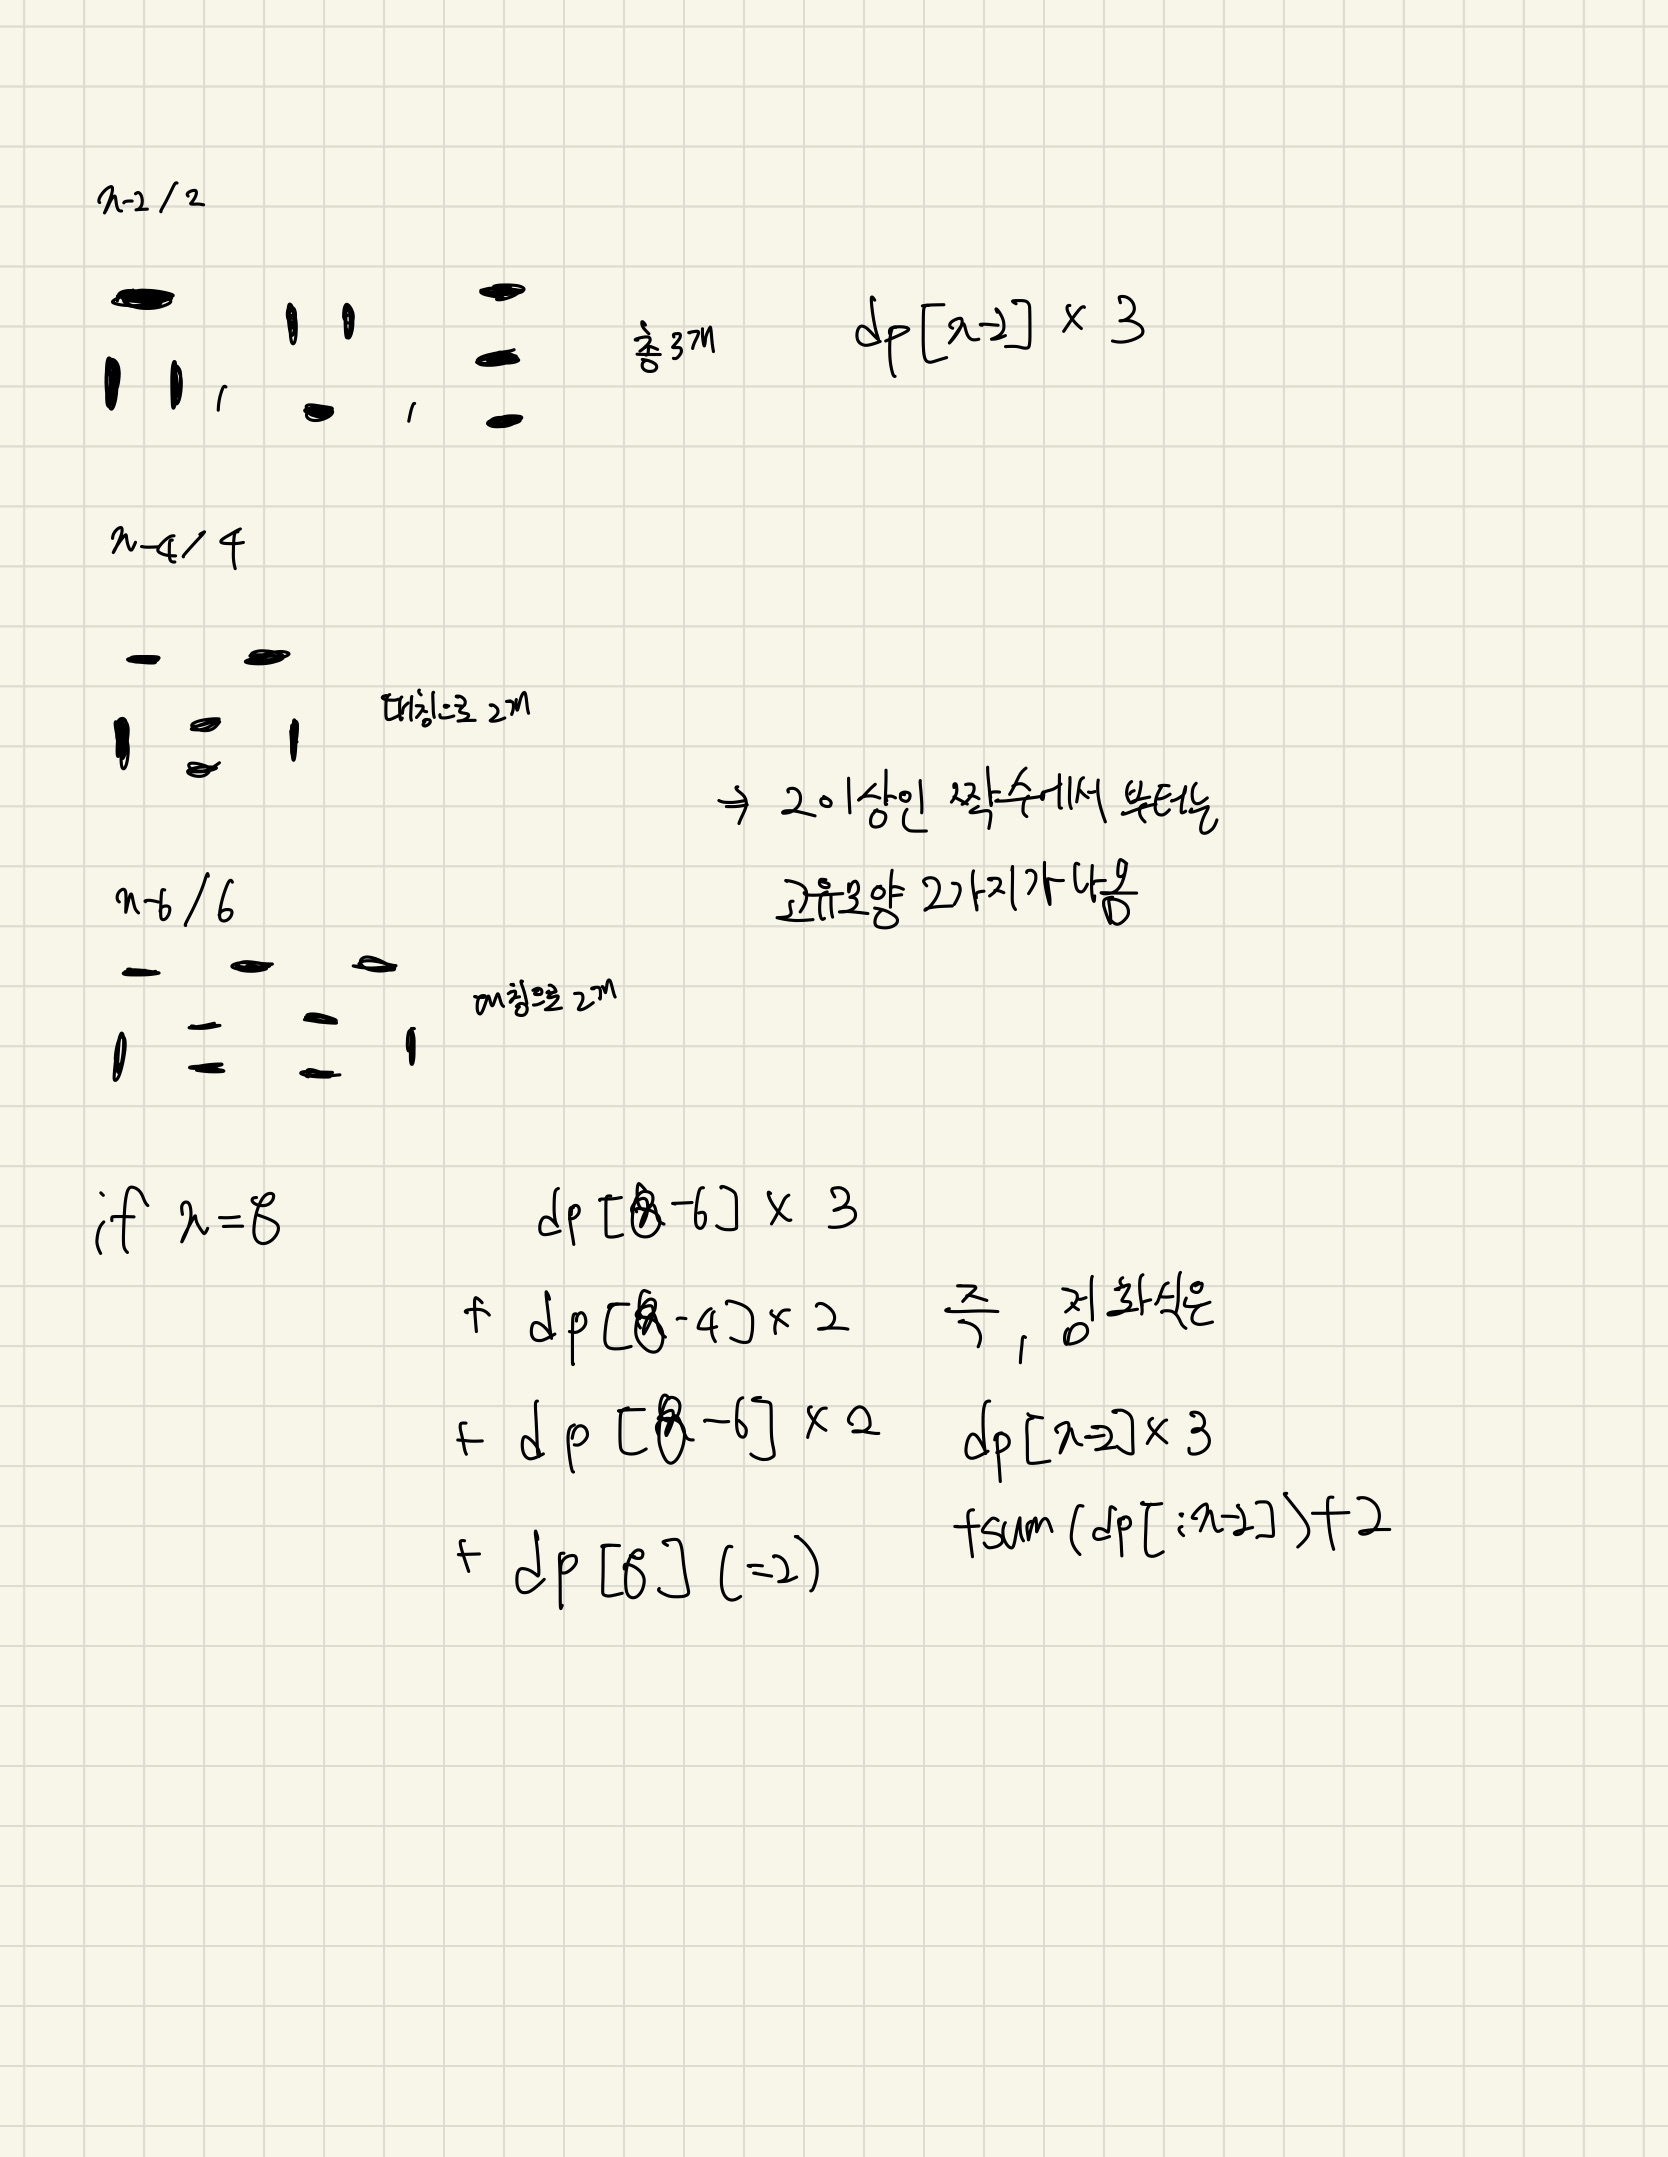 n-2/2
총 3개 dp[n-2] × 3
n-4/4
대칭으로 2개
→ 2이상인 짝수에서 부터는
고유모양 2가지가 나옴
n-6/6
대칭으로 2개
if n=8 dp[8-6] × 3
+ dp[8-4] × 2 즉, 점화식은
+ dp[8-6] × 2 dp[n-2] × 3
+sum(dp[:n-2])+2
+ dp[8] (=2)